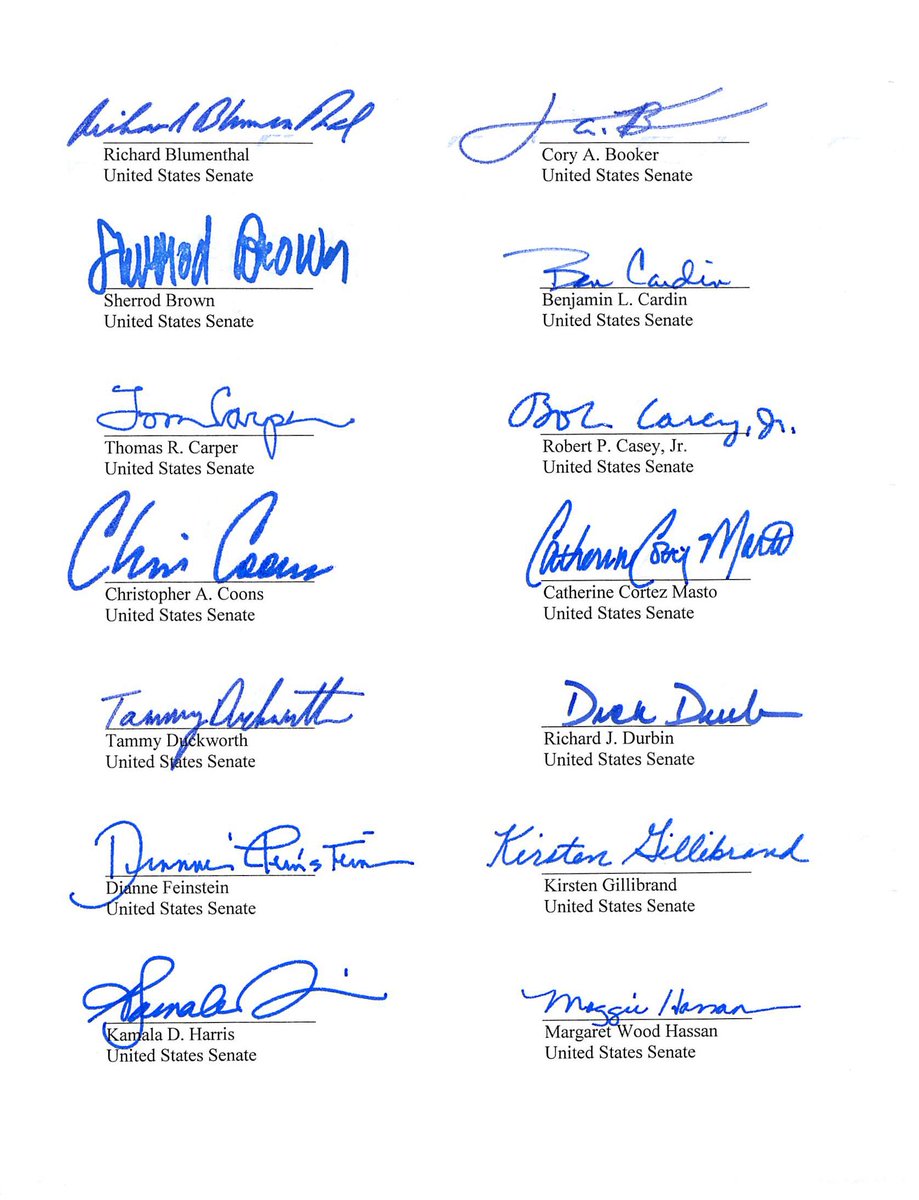 Richard Blumenthal
Richard Blumenthal
United States Senate
C A. B
Cory A. Booker
United States Senate
Sherrod Brown
Sherrod Brown
United States Senate
Ben Cardin
Benjamin L. Cardin
United States Senate
Tom Carper
Thomas R. Carper
United States Senate
Bob Casey, Jr.
Robert P. Casey, Jr.
United States Senate
Chris Coons
Christopher A. Coons
United States Senate
Catherine Cortez Masto
Catherine Cortez Masto
United States Senate
Tammy Duckworth
Tammy Duckworth
United States Senate
Dick Durbin
Richard J. Durbin
United States Senate
Dianne Feinstein
Dianne Feinstein
United States Senate
Kirsten Gillibrand
Kirsten Gillibrand
United States Senate
Kamala
Kamala D. Harris
United States Senate
Maggie Hassan
Margaret Wood Hassan
United States Senate